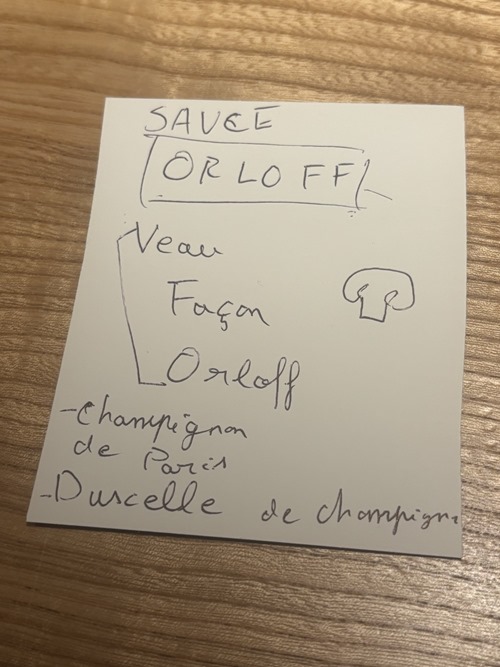 SAUCE
ORLOFF
Veau
Façon
Orloff
-Champignon
de Paris
-Duxcelle de champign